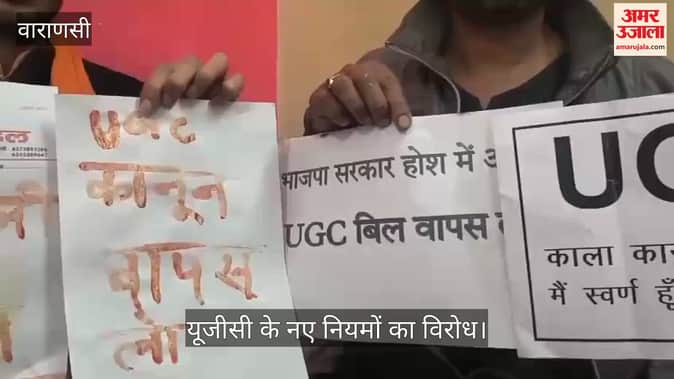 वाराणसी
अमर
उजाला
amarujala.com
UGC
कानून
वापस
लो
भाजपा सरकार होश में
UGC बिल वापस
काला
मैं स्वर्ण हूँ
यूजीसी के नए नियमों का विरोध।